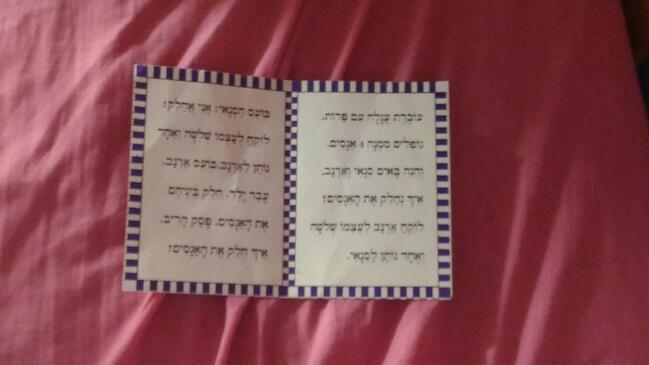 עוברת עגלה עם פרות,
נופלים ממנה 4 אגסים.
והנה באים סנאי וארנב,
איך נחלק את האגסים?
לוקח ארנב לעצמו שלשה
ואחד נותן לסנאי.
כועס הסנאי: אני אחלק!
לוקח לעצמו שלשה ואחד
נותן לארנב. כועס ארנב.
עבר ילד, חלק ביניהם
את האגסים. פסק הריב.
איך חלק את האגסים?